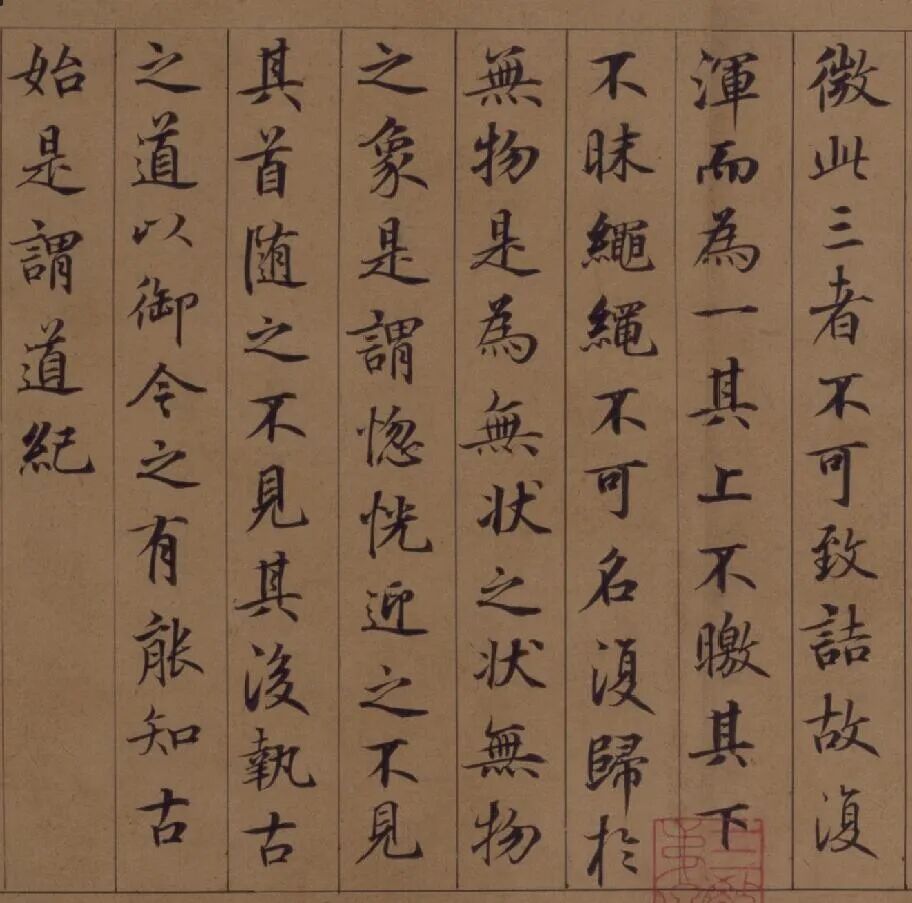 微此三者不可致詰故復
渾而為一其上不曒其下
不昧繩繩不可名復歸於
無物是為無状之状無物
之象是謂惚恍近之不見
其首随之不見其後執古
之道以御今之有能知古
始是謂道紀